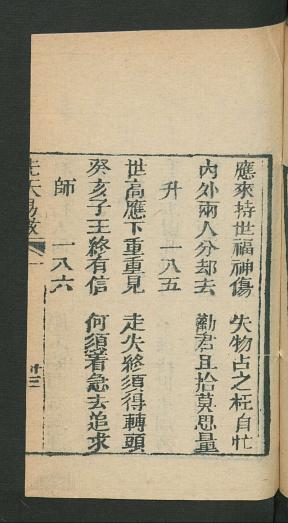 應爻持世福神傷　失物占之枉自忙
內外兩人分却去　勸君且拾莫思量
升　一八五
世高應下重重見　走失終須得轉頭
癸亥子王終有信　何須著急去追求
師　一八六
先天易數
一
廿三